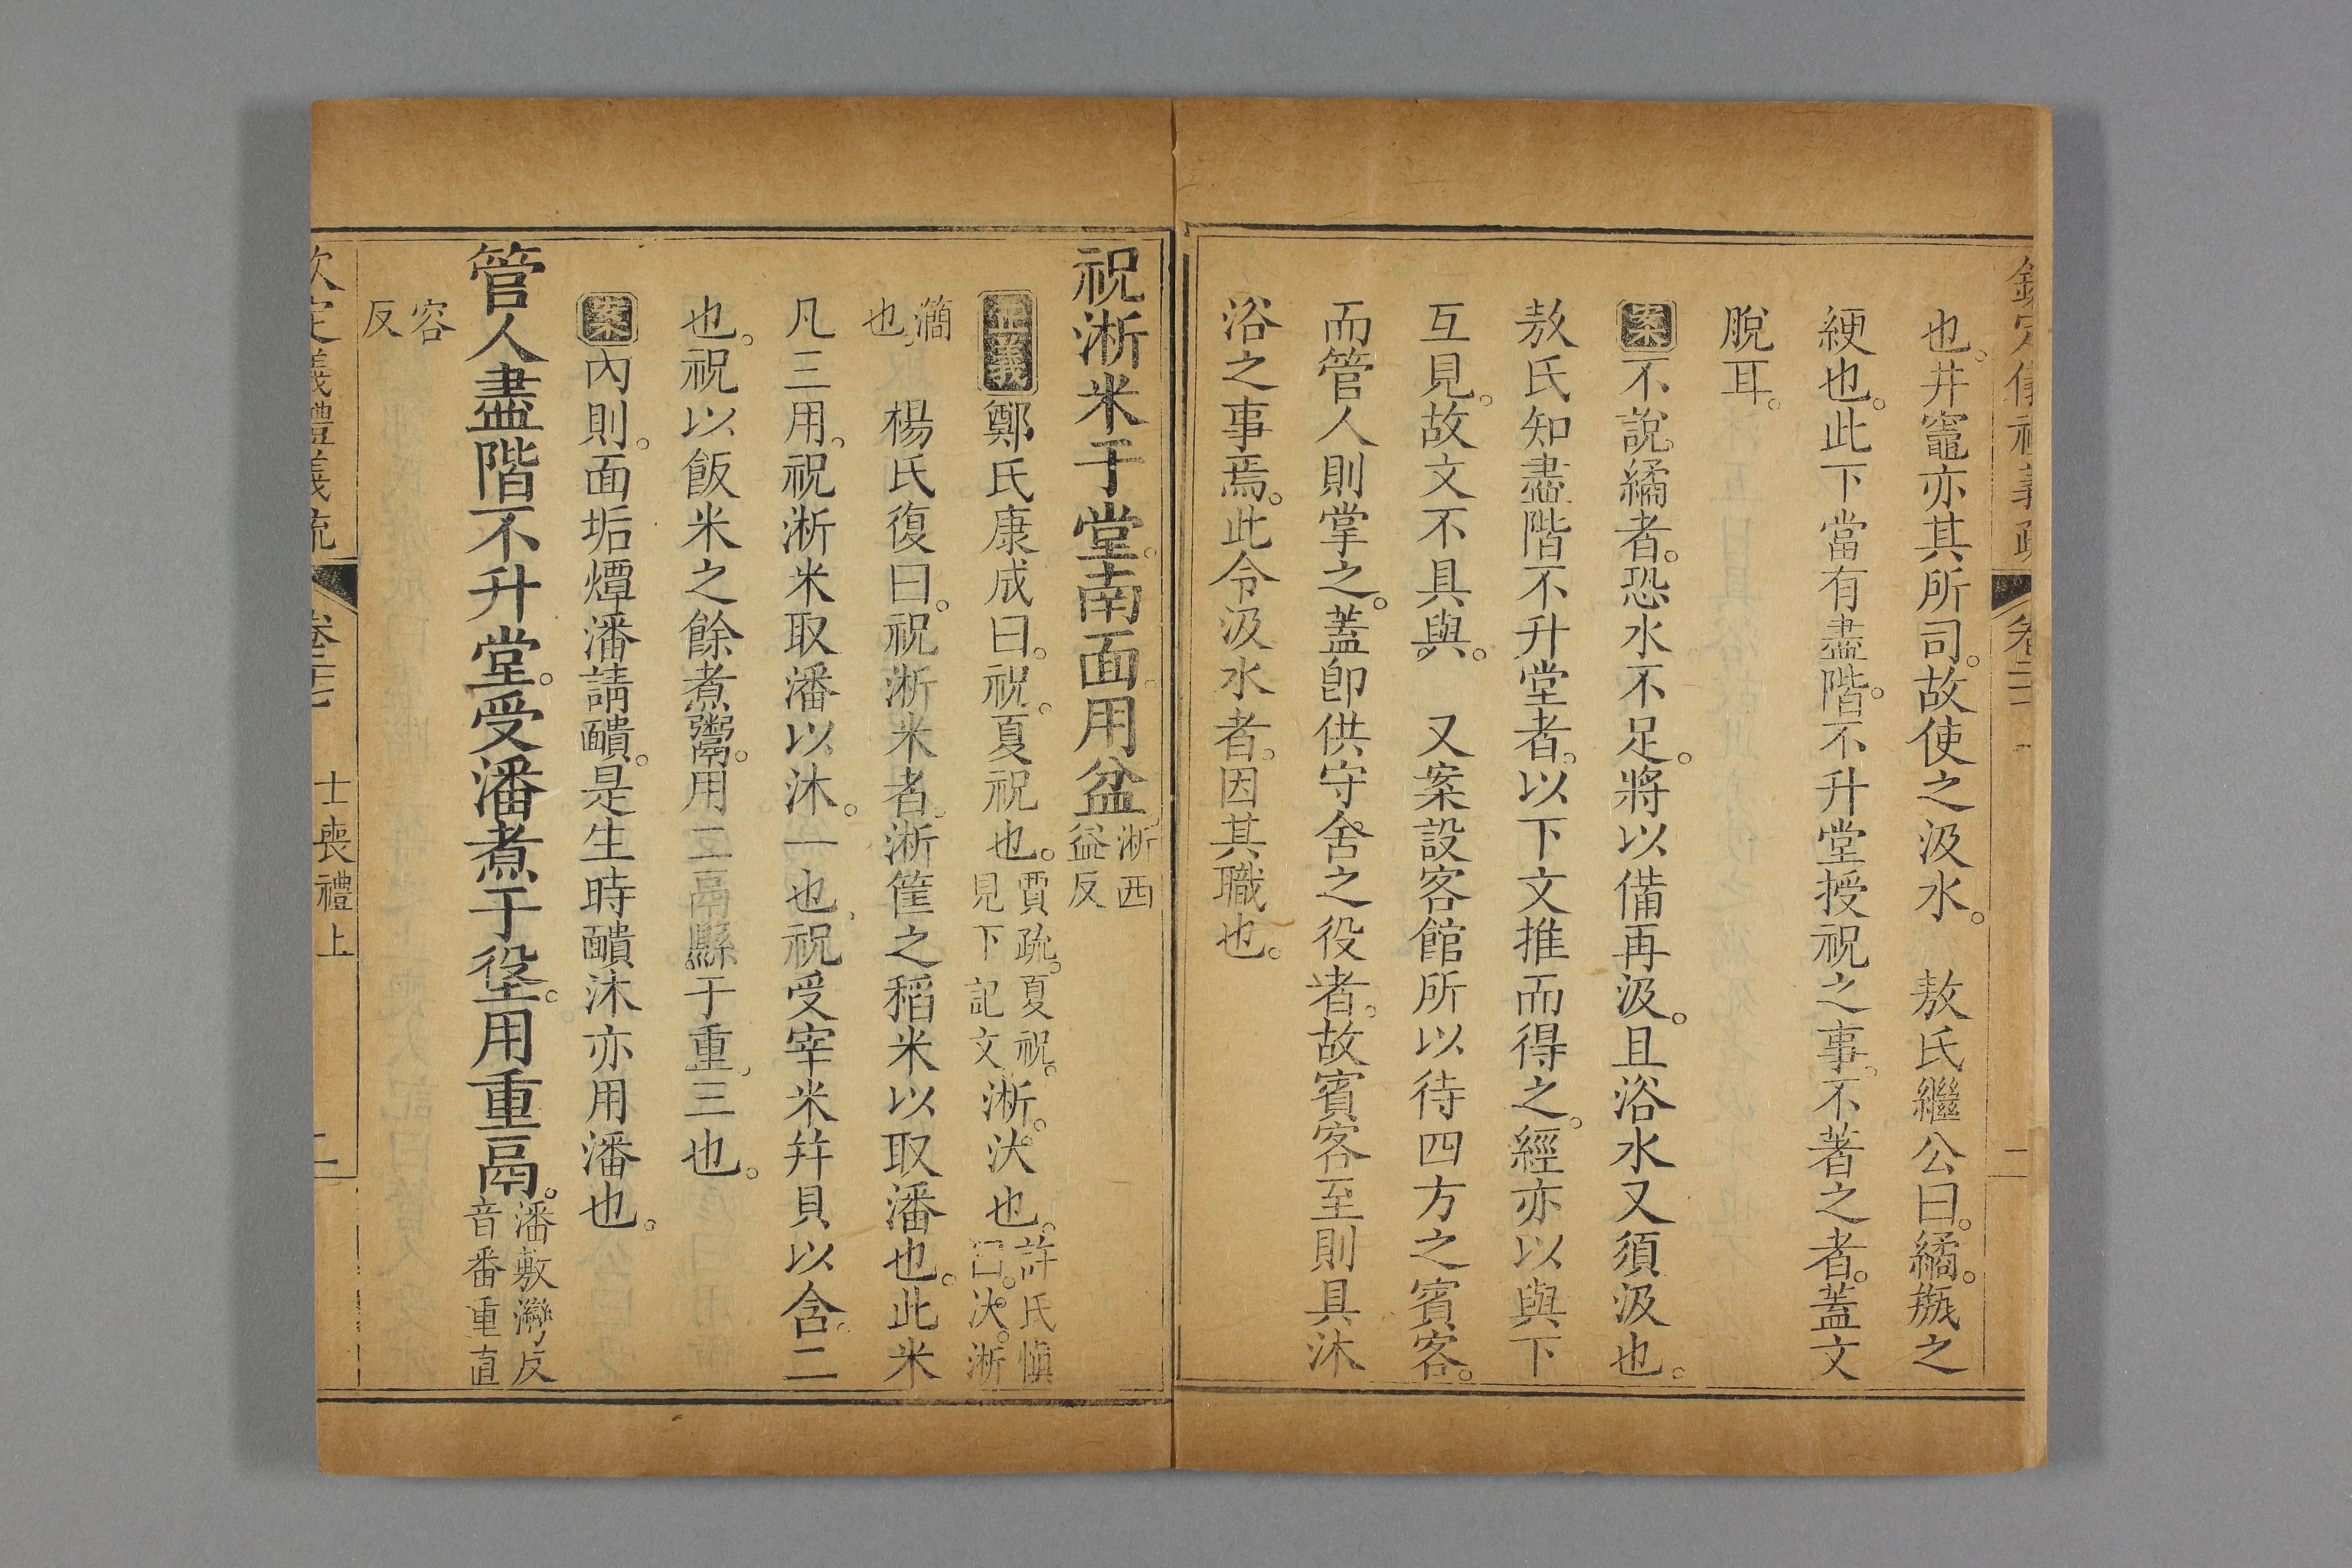 也。井竈亦其所司。故使之汲水。　敖氏繼公曰。繘。瓶之
綆也。此下當有盡階。不升堂授祝之事。不著之者。蓋文
脫耳。
案不說繘者。恐水不足。將以備再汲。且浴水又須汲也。
敖氏知盡階不升堂者。以下文推而得之。經亦以與下
互見。故文不具與。　又案設客館所以待四方之賓客。
而管人則掌之。蓋卽供守舍之役者。故賓客至則具沐
浴之事焉。此令汲水者。因其職也。
祝淅米于堂。南面。用盆淅西益反
正義鄭氏康成曰。祝。夏祝也。賈疏。夏祝。見下記文淅。汏也。許氏愼曰。汏。淅
灡也。　楊氏復曰。祝淅米者。淅筐之稻米以取潘也。此米
凡三用。祝淅米取潘以沐。一也。祝受宰米幷貝以含。二
也。祝以飯米之餘煮鬻。用二鬲縣于重。三也。
案內則。面垢燂潘請靧。是生時靧沐亦用潘也。
管人盡階不升堂。受潘煮于垼。用重鬲。潘敷灣反音番重直
容反
欽定儀禮義疏　卷二十七　士喪禮上　二